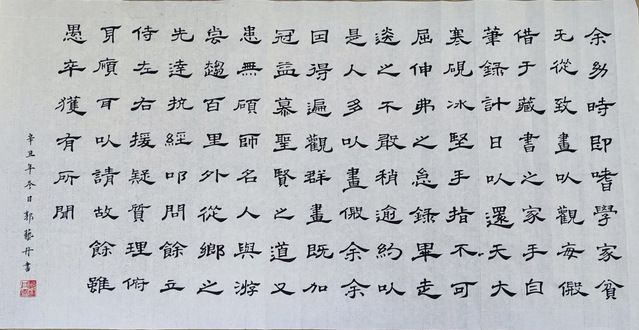 余幼時即嗜學家貧
无從致書以觀每假
借于藏書之家手自
筆録計日以還天大
寒硯冰堅手指不可
屈伸弗之怠録畢走
送之不敢稍逾約以
是人多以書假余余
因得遍觀群書既加
冠益慕聖賢之道又
患無碩師名人與游
嘗趨百里外從鄉之
先達執經叩問餘立
侍左右援疑質理俯
身傾耳以請故餘雖
愚卒獲有所聞
辛丑年冬日郭藝丹書